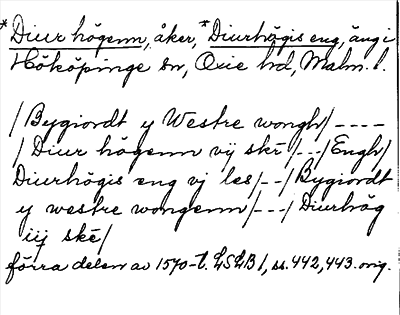 *Diur högenn, åker, *Diurhögis eng, äng i
Hököpinge sn, Oxie hd, Malm. l.
/Bygiordt y Westre wongh/----
/Diur högenn vij skē/--/Engh/
Diurhögis eng vj les/--/Bygiordt
y westre wongenn/---/Diurhög
iij skē/
förra delen av 1570-t. LSLB 1, ss. 442, 443. orig.